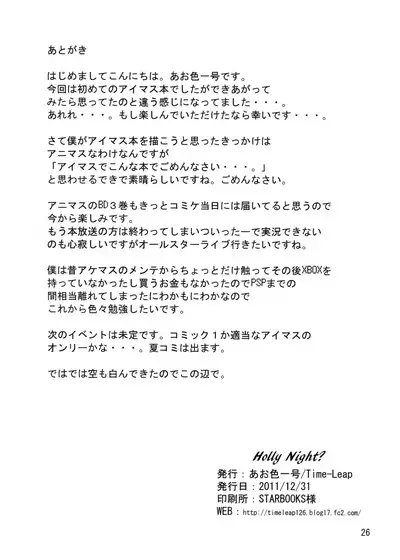 あとがき
はじめましてこんにちは。あお色一号です。
今回は初めてのアイマス本でしたができあがって
みたら思ってたのと違う感じになってました・・・。
あれれ・・・。もし楽しんでいただけたなら幸いです・・・。
さて僕がアイマス本を描こうと思ったきっかけは
アニマスなわけなんですが
「アイマスでこんな本でごめんなさい・・・。」
と思わせるできで素晴らしいですね。ごめんなさい。
アニマスのBD３巻もきっとコミケ当日には届いてると思うので
今から楽しみです。
もう本放送の方は終わってしまいついったーで実況できない
のも心寂しいですがオールスターライブ行きたいですね。
僕は昔アケマスのメンテからちょっとだけ触ってその後XBOXを
持っていなかったし買うお金もなかったでPSPまでの
間相当離れてしまったにわかもにわかなので
これから色々勉強したいです。
次のイベントは未定です。コミック１か適当なアイマスの
オンリーかな・・・。夏コミは出ます。
ではでは空も白んできたのでこの辺で。
Holly Night?
発行：あお色一号/Time-Leap
発行日：2011/12/31
印刷所：STARBOOKS様
WEB：http://timeleap126.blog17.fc2.com/
26